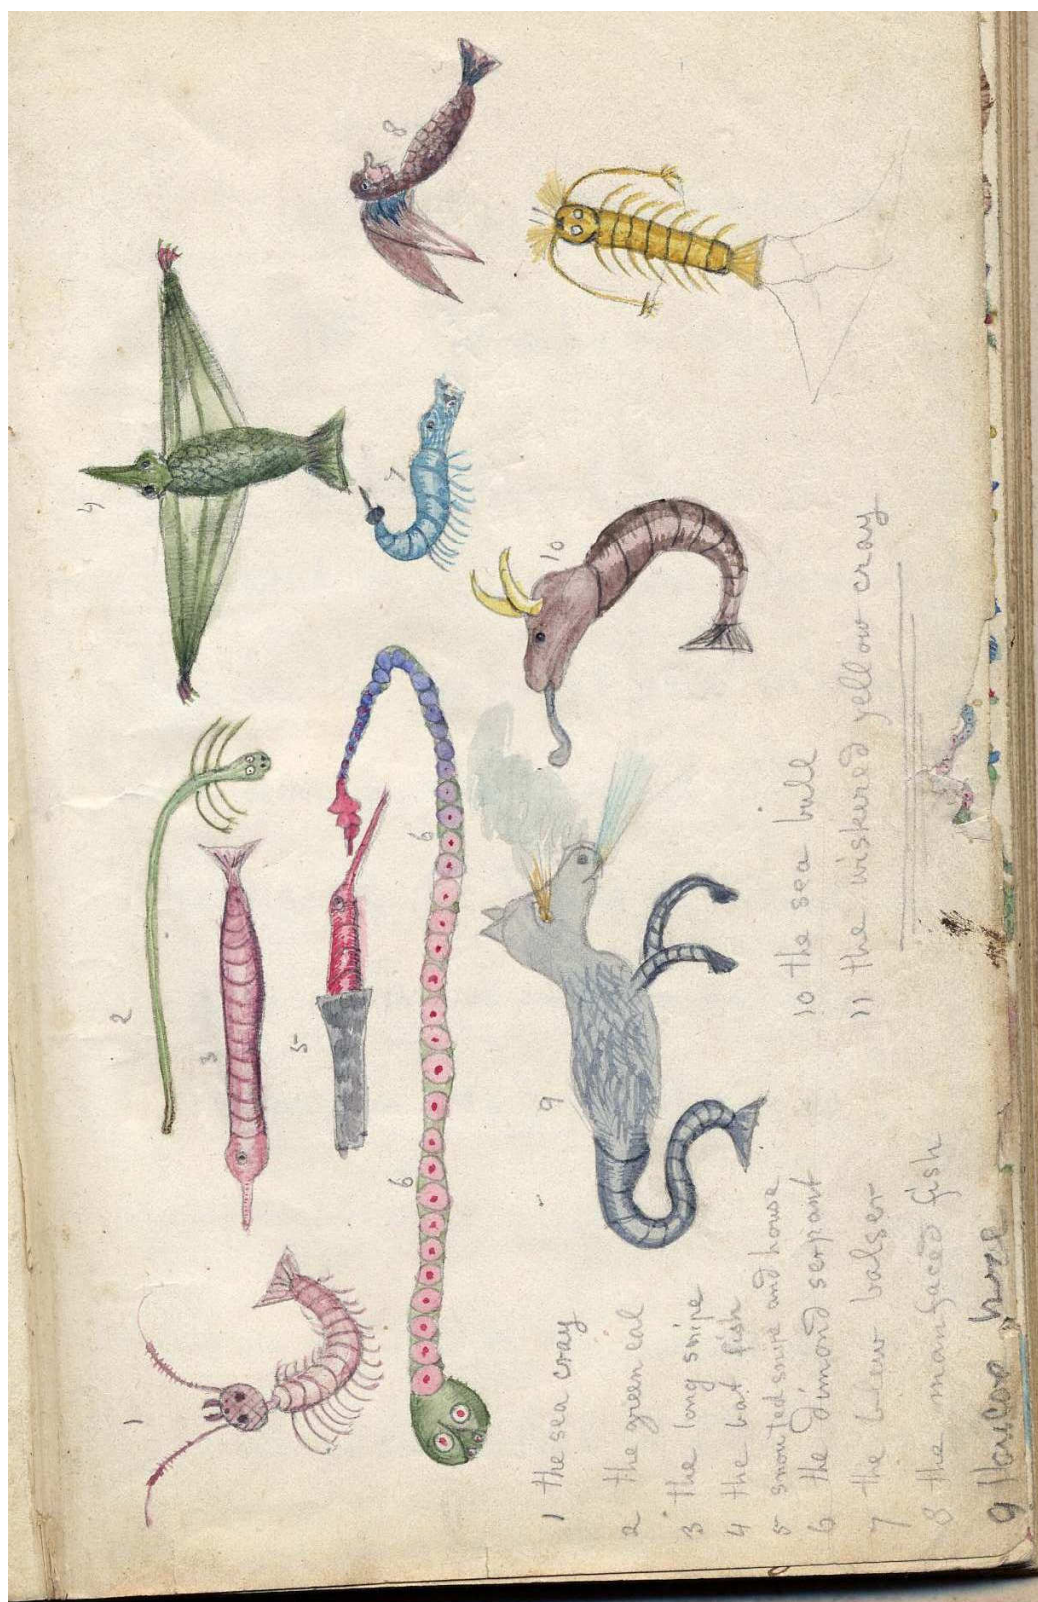 1
2
3
4
5
6
6
7
8
9
10
1 the sea cray
2 the green eal
3 the long snipe
4 the bat fish
5 snouted snipe and house
6 the dimond serpant
7 the blew balser
8 the man faced fish
9
10 the sea bull
11 the wiskered yellow cray